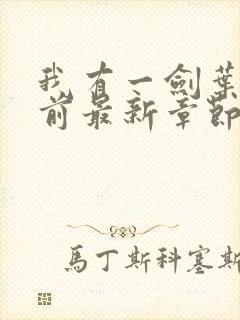 我有一劍葉
前最新章節
馬丁斯科塞斯